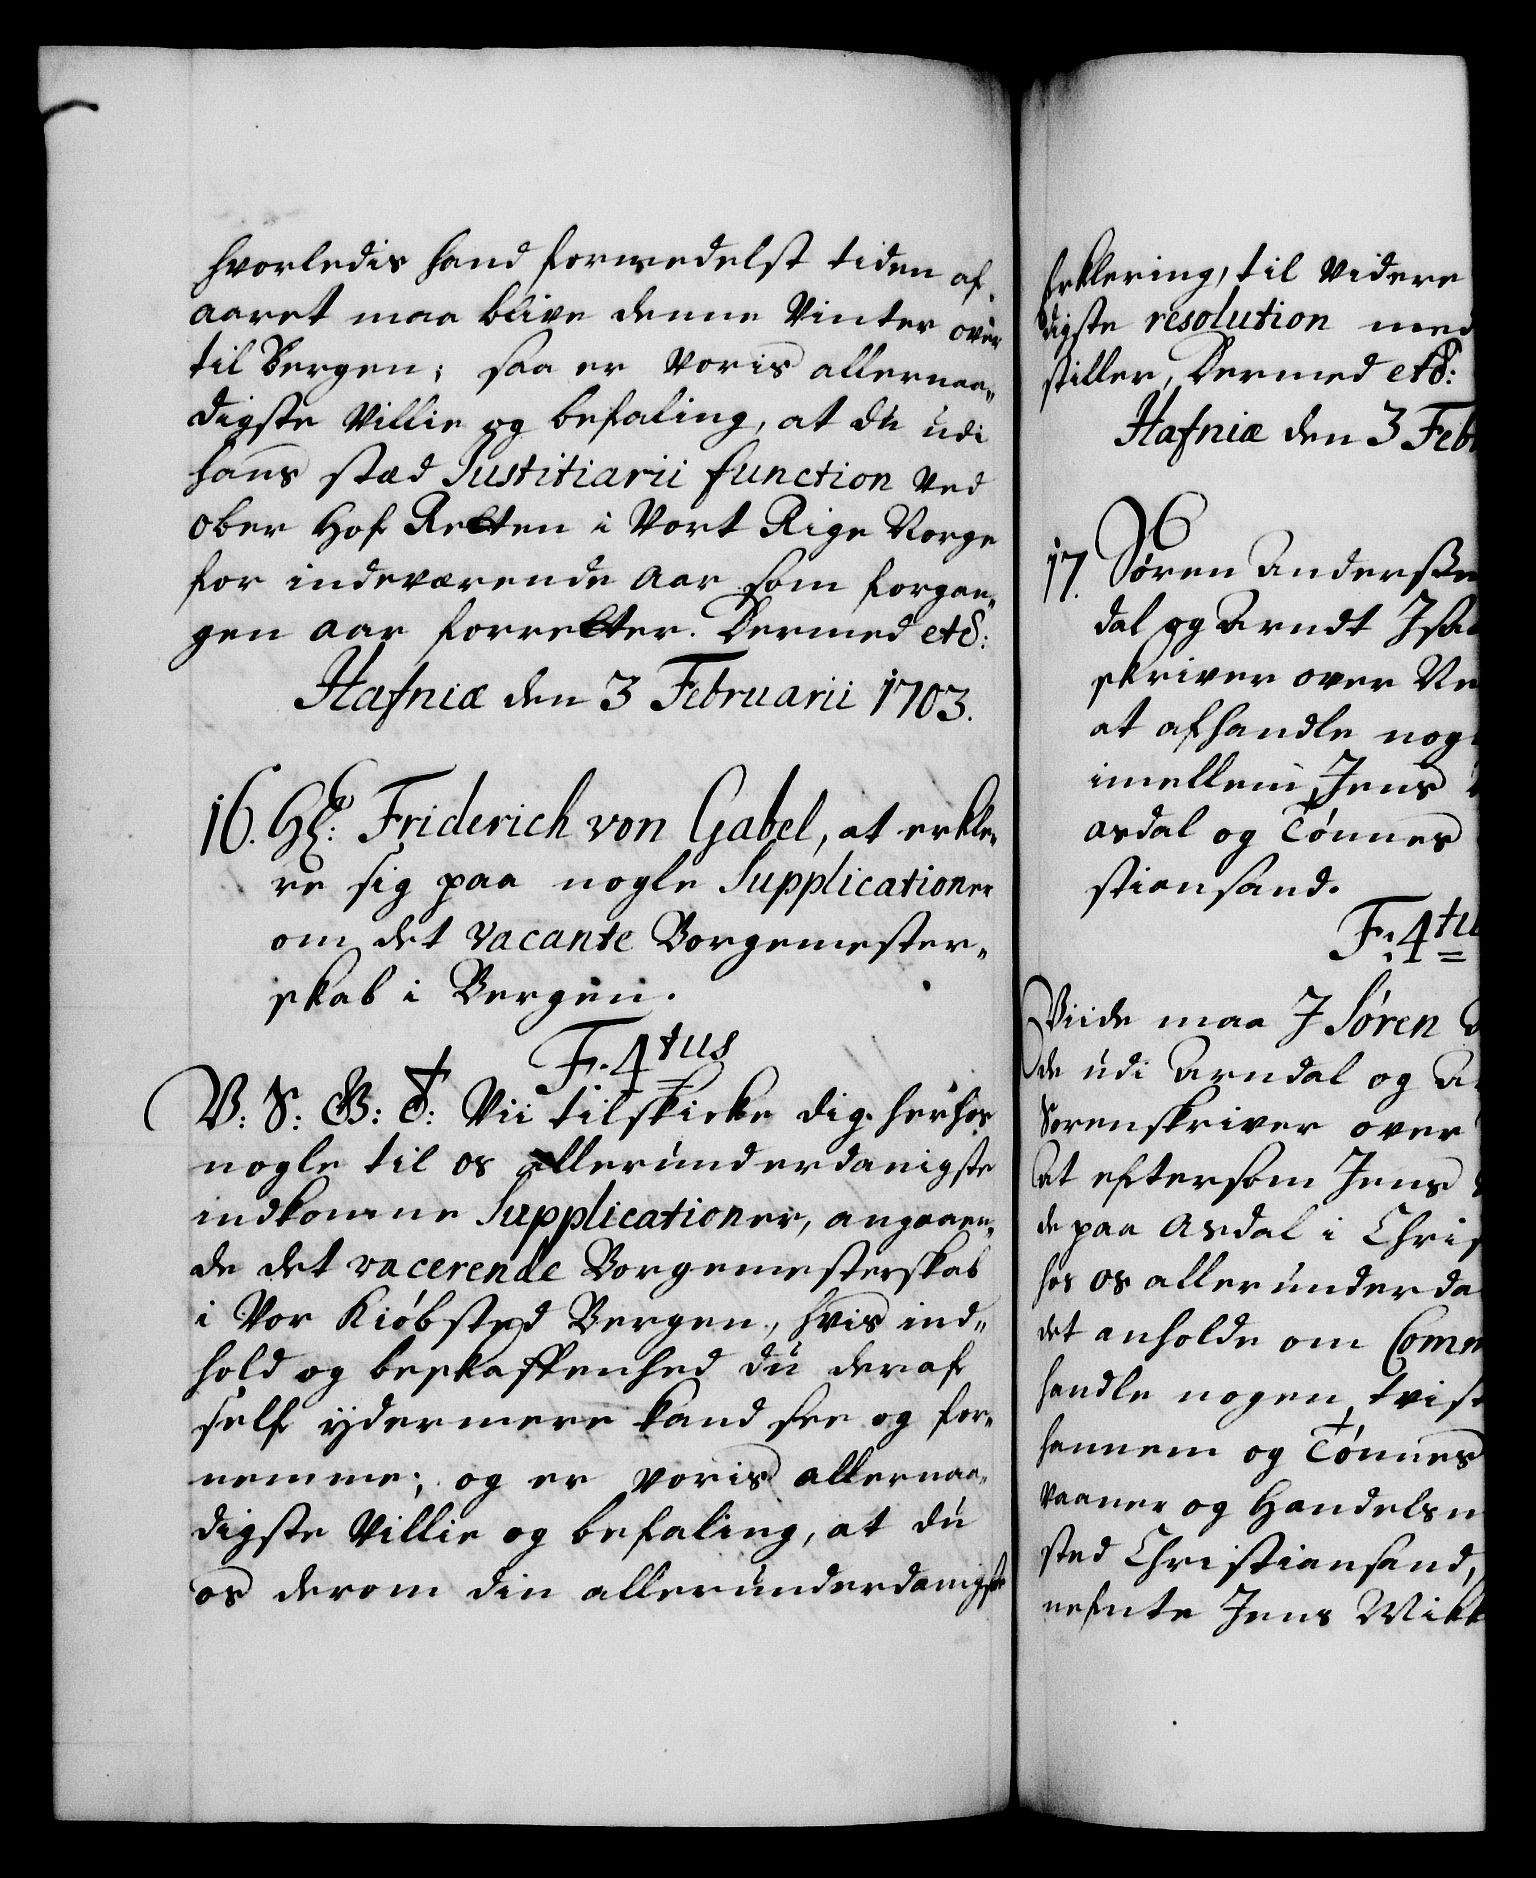 hvorledis hand formedelst tiden af
aaret maa blive denne Vinter over
til Bergen; saa er voris allernaa„
digste Villie og befaling, at du udi
hans stæd Justitiarii function ved
ober Hof Retten i Vort Rige Norge
for indeværende Aar som forgan„
gen aar forretter. Dermed etc:
Hafniæ den 3 Februarii 1703.
16. Hr: Friderich von Gabel, at erkle„
re sig paa nogle Supplicationer
om det vacante Borgemester„
skab i Bergen.
F. 4tus
V: S: G: T: Vii tilskicke dig herhos
nogle til os allerunderdanigste
indkomne Supplicationer, angaaen„
de det vacerende Borgemesterskab
i Vor Kiöbsted Bergen, hvis ind„
hold og beskaffenhed du deraf
self ydermere kand see og for„
nemme; og er voris allernaa„
digste Villie og befaling, at du
os derom din allerunderdanigste
Erklering, til Videre
digste resolution med
stiller, Dermed etc:
Hafniæ den 3 Feb
17. Sören Anderssen
dal og Arndt Isa
skriver over Ne
at afhandle nog
imellem Jens
asdal og Tönnes
stiansand.
F: 4tu
Viide maa I Sören
de udi Arndal og A
Sorenskriver over
At eftersom Jens
de paa Asdal i Chris
hos os allerunderda
det anholde om Comm
handle nogen tvist
hannem og Tönnes
vaaner og Handelsm
sted Christiansand,
nefnte Jens Wikk